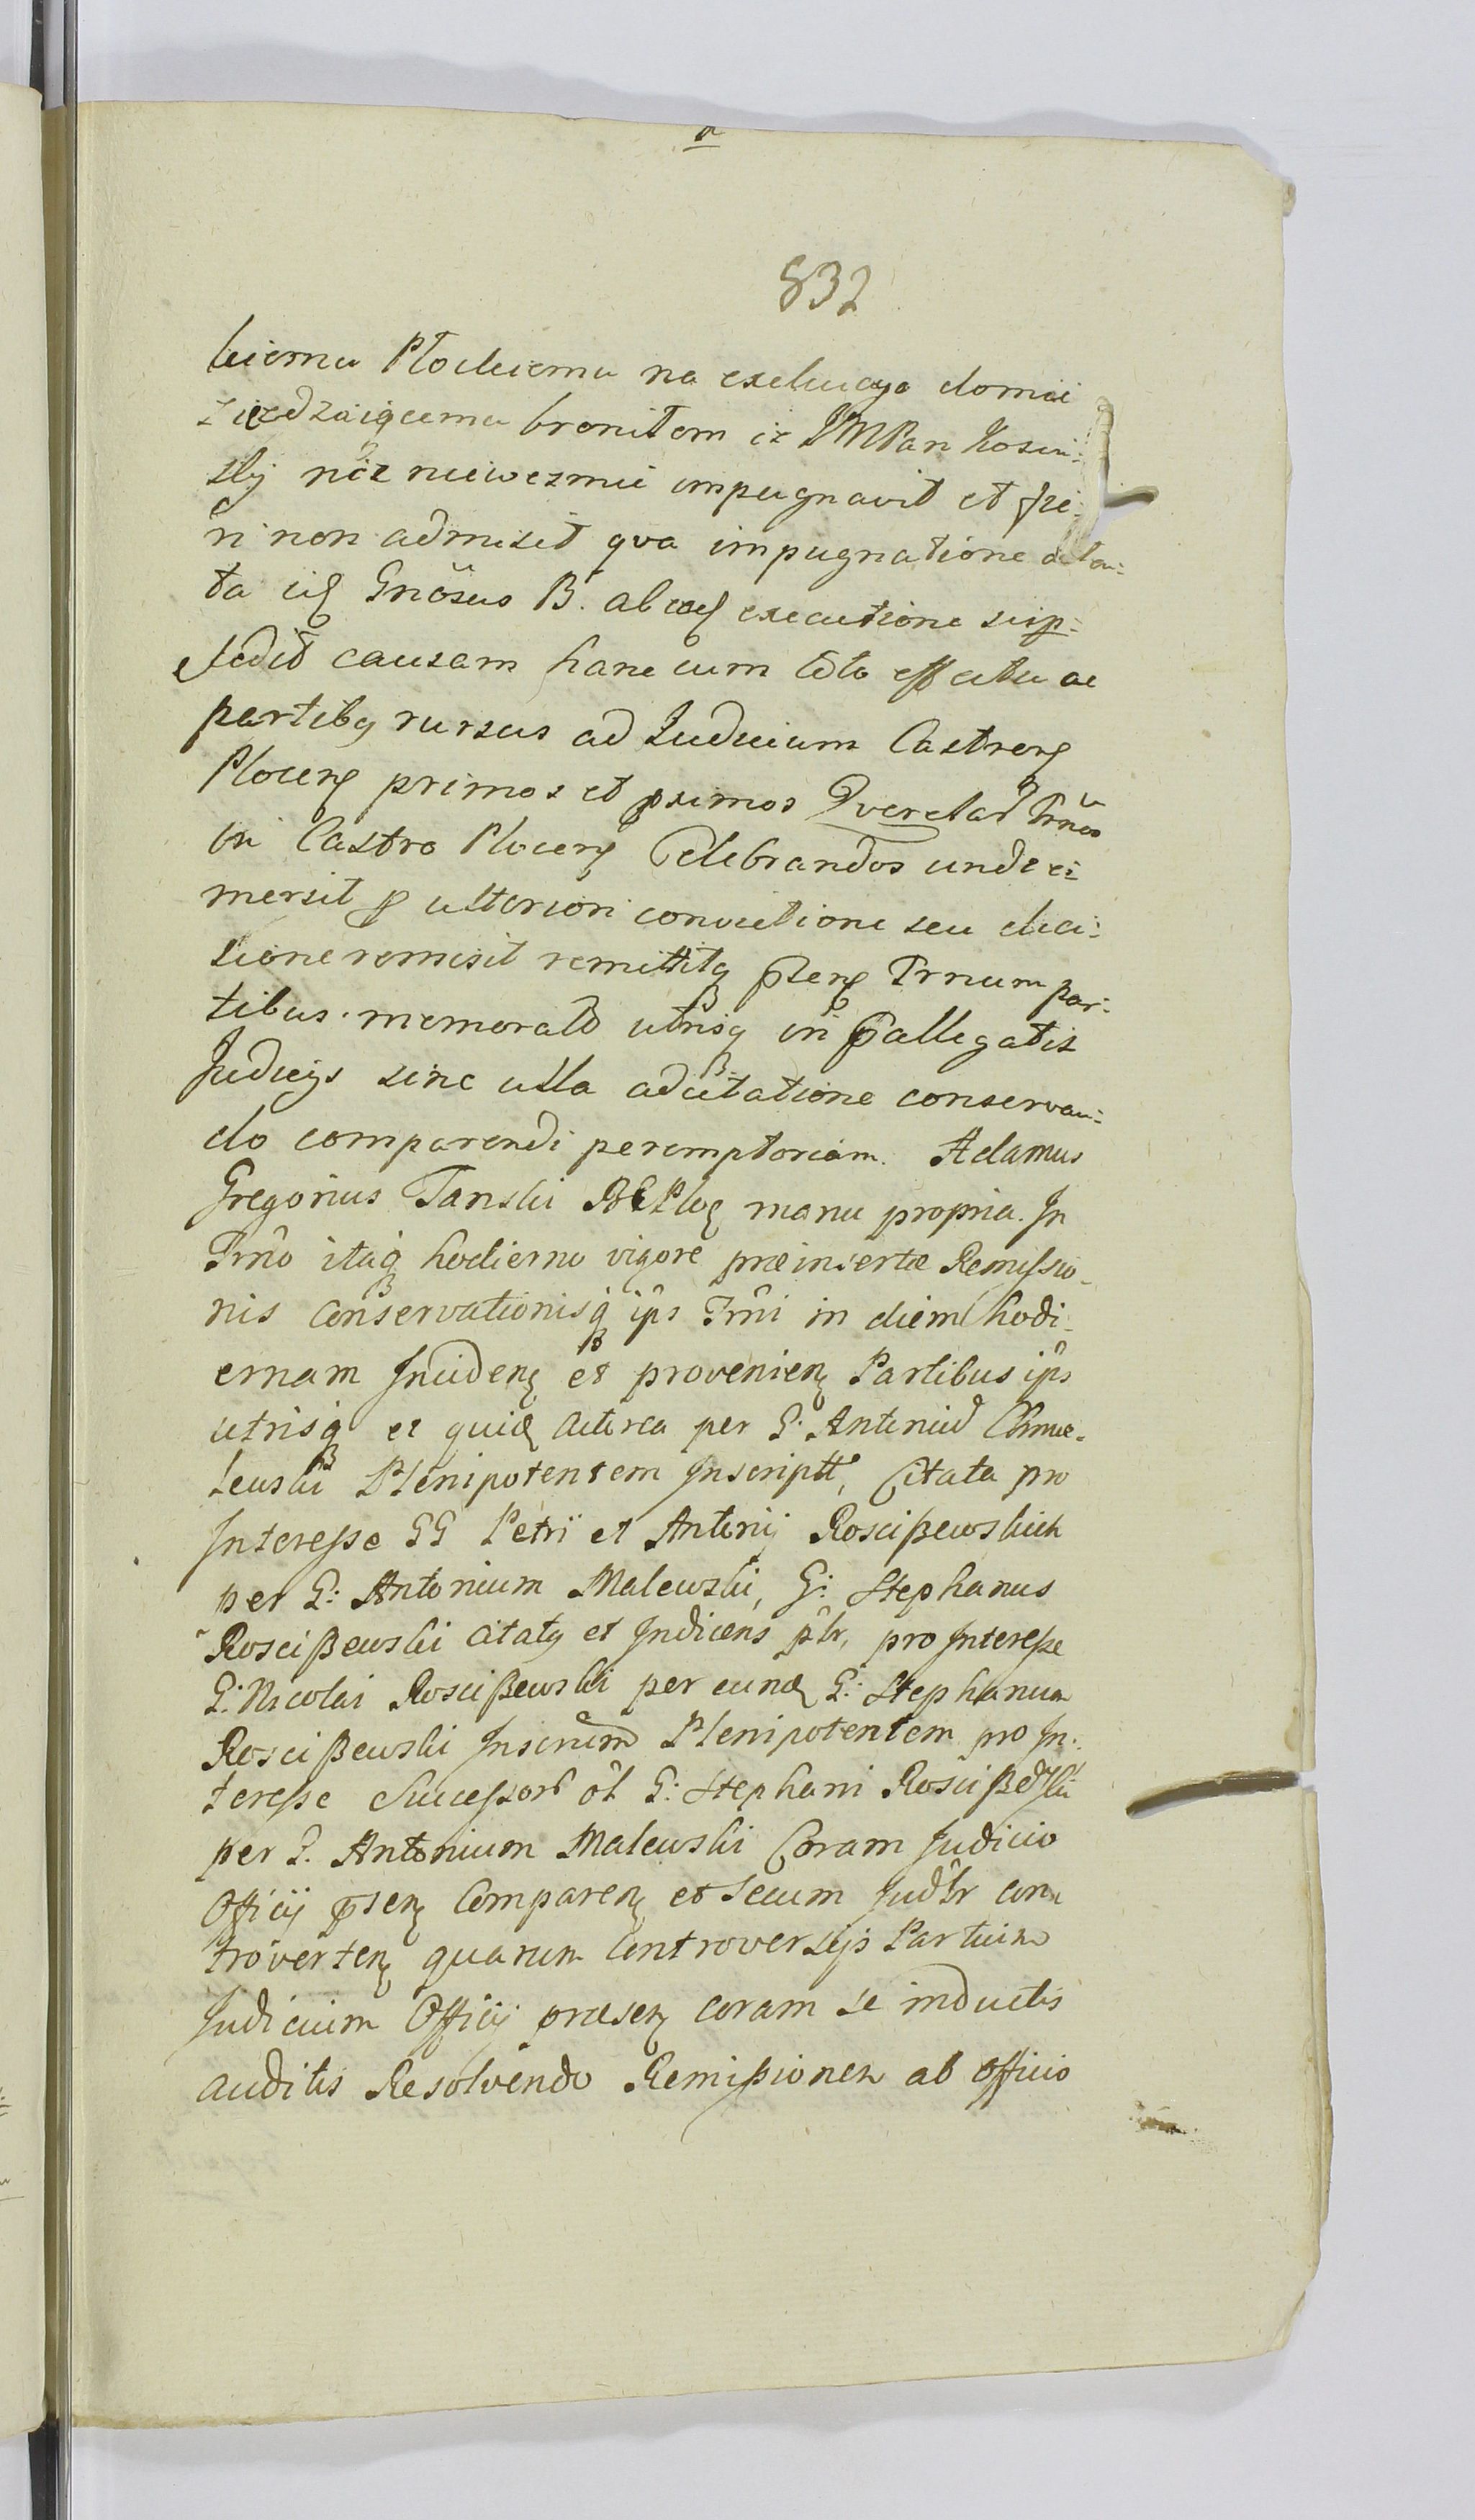 832
kiemu Płockiemu na exekucyą domie
ziezdzaiącemu bronitem iz JMPan Kosin:
sky nic niewezmie impugnavit et fie:
ri non admisit qva impugnatione atten:
ta idq Gnosus B. ab eadq executione sup:
sedit causam hanc cum toto effectu ac
partibq rursus ad Judicium Castrenq
Plocenq primos et pximos Querelar Trnos
in Castro Plocenq Celebrandos unde e:
mersit p ulteriori convictione seu deci:
sione remisit remittitq psenq Trnum par:
tibus memorald utrisq in pallegatis
Judicijs sine ulla adcitatione conservan:
do comparendi peremptorium. Adamus
Gregorius Tanski BGPloq manu propria. In
Trno itaq hodierno vigore præinsertæ Remissio-
nis conservationisq ips Trni in diem hodi-
ernam Incidenq et provenienq Partibus ips
utrisq et quidq Actorea per G. Antoniud Chmie-
lewski Plenipotentem Inscriptt, Citata pro
Interesse GG Petri et Antonij Rosciβewskich
per G: Antonium Malewski, G: Stephanus
Rosciβewski Citatq et Indicens plr, pro Interesse
G: Nicolai Rosciβewski per eundq G: Stephanum
Rosciβewski Inscrum Plenipotentem pro In-
teresse Successorb ol G: Stephani Rosciβewski
per G. Antonium Malewski Coram Judicio
Officij psenq Comparenq et secum Judlr con
trovertenq quarum Controversijs Partium
Judicium Officij præsenq coram se inductis
auditis Resolvendo Remiβionem ab officio